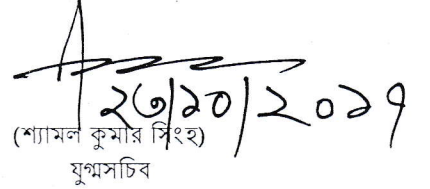 ২৩/১০/২০১৭
(শ্যামল কুমার সিংহ)
যুগ্মসচিব